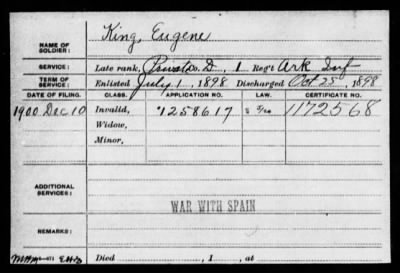 NAME OF SOLDIER: King, Eugene
SERVICE: Late rank, Private D, 1 Reg't Ark Inf
TERM OF SERVICE: Enlisted July 1, 1898 Discharged Oct 25, 1898
DATE OF FILING. CLASS. APPLICATION NO. LAW. CERTIFICATE NO.
1900 Dec 10 Invalid, 1258617 1172568
Widow,
Minor,
ADDITIONAL SERVICES:
WAR WITH SPAIN
REMARKS:
Died , 1 , at